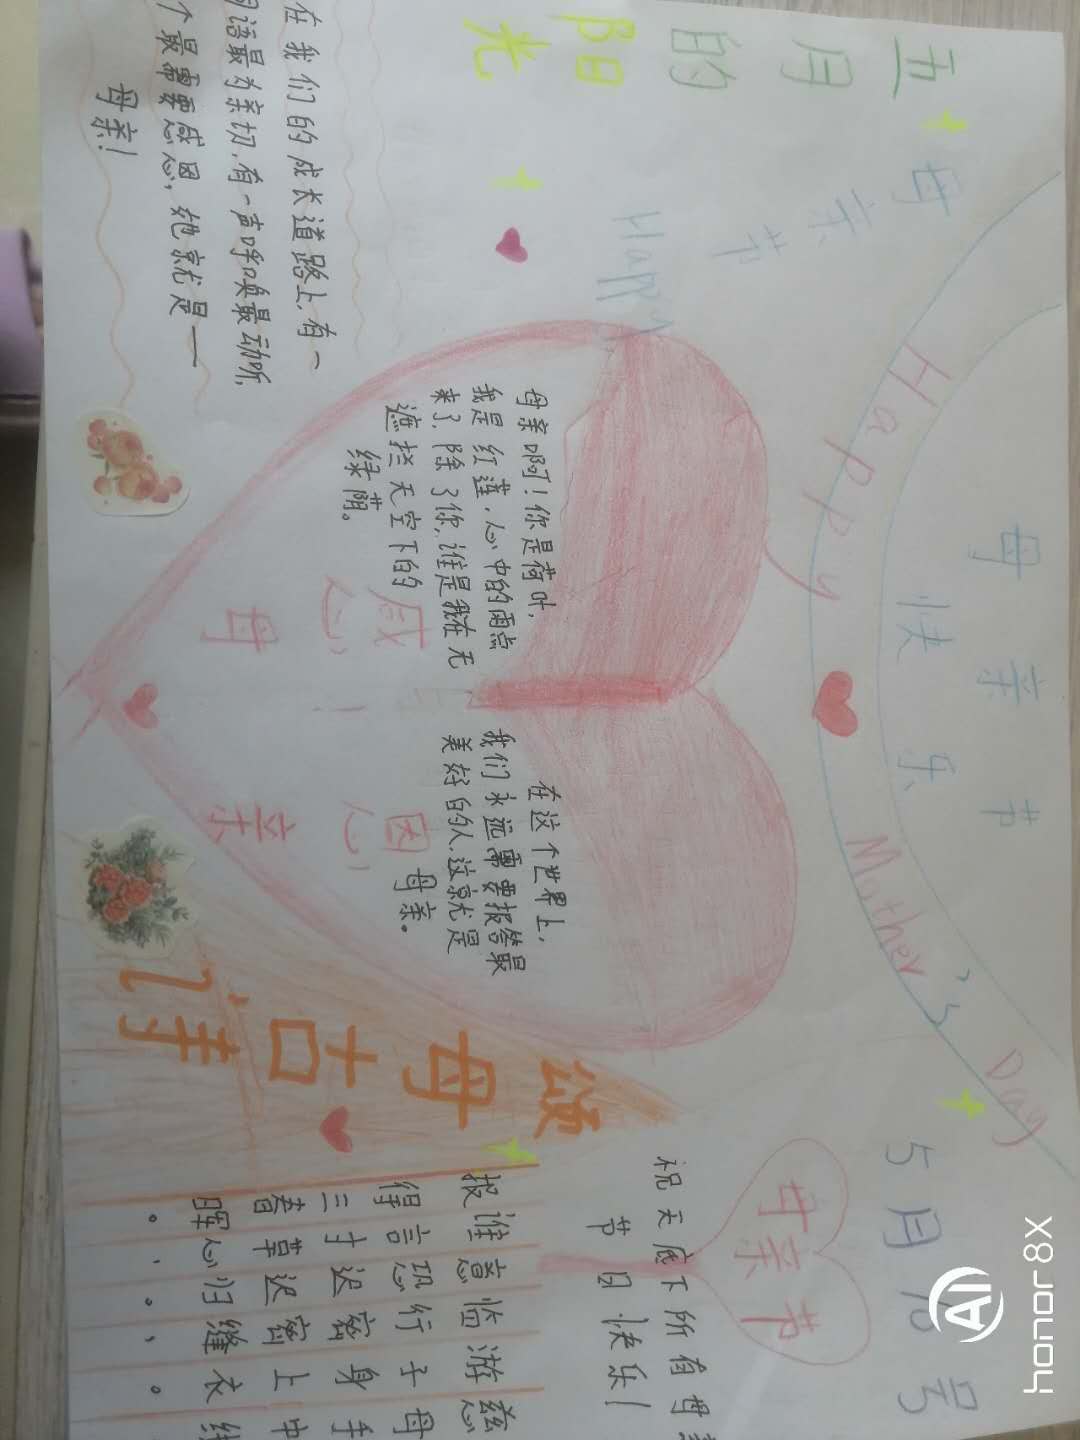 五月的阳光
母亲节
Happy
母亲节
快乐
Happy Mother's Day
5月10号
母亲节
祝天底下所有母亲
节日快乐!
在我们的成长道路上,有一
词语最为亲切,有一声呼唤最动听,
个最需要感恩,她就是——
母亲!
母亲啊!你是荷叶,
我是红莲,心中的雨点
来了,除了你,谁是我在无
遮拦天空下的
绿荫。
在这个世界上,
我们永远需要报答最
美好的人,这就是
母亲。
感恩
母亲
!
颂母古诗
慈母手中线,
游子身上衣。
临行密密缝,
意恐迟迟归。
谁言寸草心,
报得三春晖。
honor 8X
AI